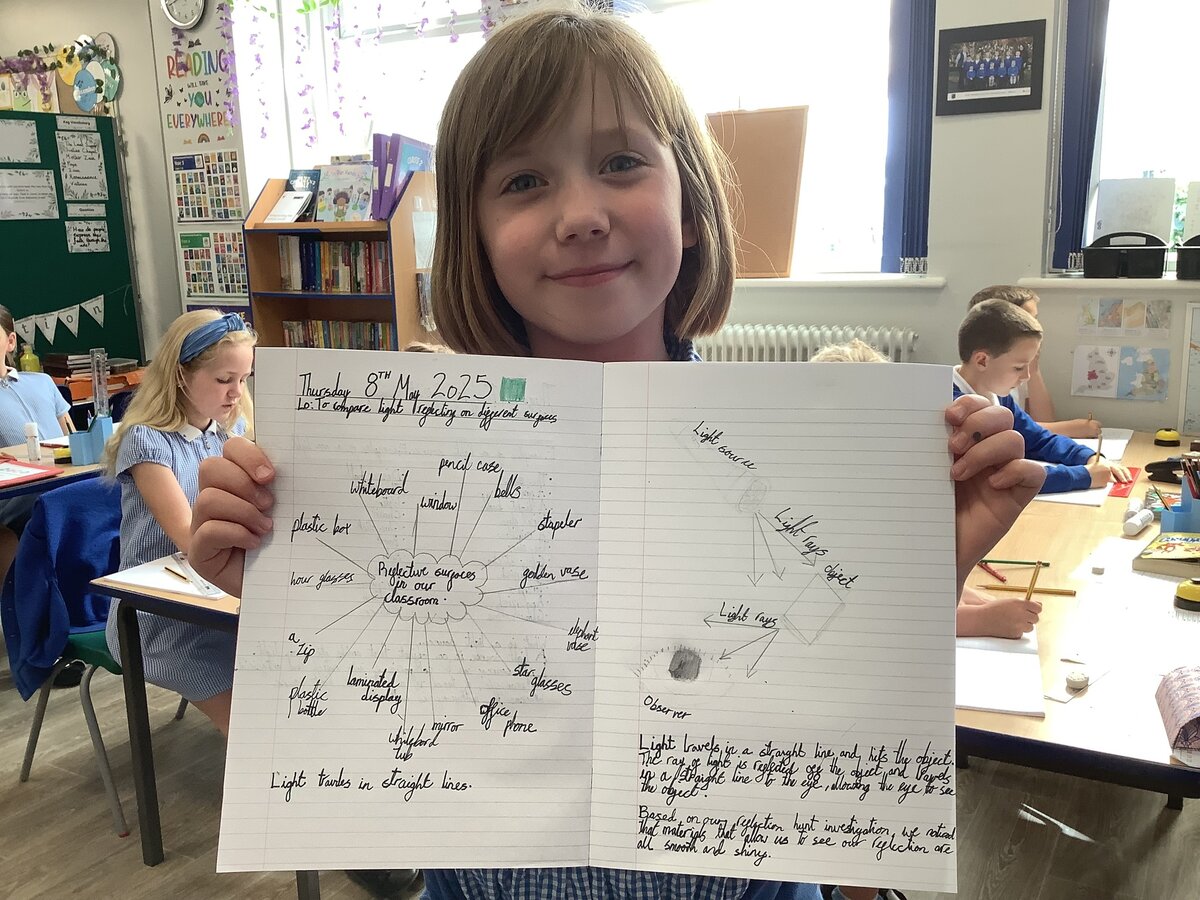 READING
WILL TAKE
YOU
EVERYWHERE
tion
Thursday 8TH May 2025
Lo: To compare light reflecting on different surfaces
pencil case
whiteboard
window
bells
plastic box
stapeler
hour glasses
Reflective surfaces
in our
classroom.
golden vase
a
zip
elephant
vase
plastic
bottle
laminated
display
star
glasses
office
phone
mirror
whitebord
Light travles in straight lines.
Light source
Light rays
object
Light rays
Observer
Light travels in a straight line and hits the object.
The ray of light is reflected off the object and travels
in a straight line to the eye, allowing the eye to see
the object.
Based on our reflection hunt investigation, we noticed
that materials that allow us to see our reflection are
all smooth and shiny.